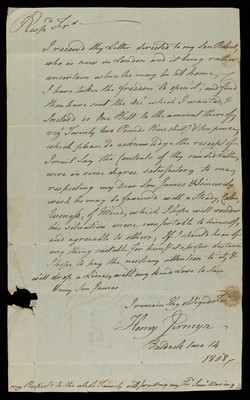 Resp.d Fr.d
I received thy Letter directed to my Son Robert,
who is now in London and it being rather
uncertain when he may be at home,
I have taken the freedom to open it, and find
thou have sent the acc.t which I wanted, &
Inclose a one Bill to the amount thereof
viz.t Twenty two Pounds Nine shill.s & ten pence
which please to acknowledge the receipt of
I must say the Contents of thy candid Letter
were in some degree satisfactory to me,
respecting my Dear Son James & sincerely
wish he may be favour'd with a Steady, Calm
of Mind, which I hope will render
his situation more comfortable to himself,
and agreeable to others, if I should hear of
any thing suitable for him, at a proper distance
to pay the necessary attention to it, &
will drop a Line, with my kind Love to
my Son James
I remain thy obliged Fr.d
Henry
Baldock 1 mo 14
1808
my Respects to the whole Family not forgetting my Fr.d